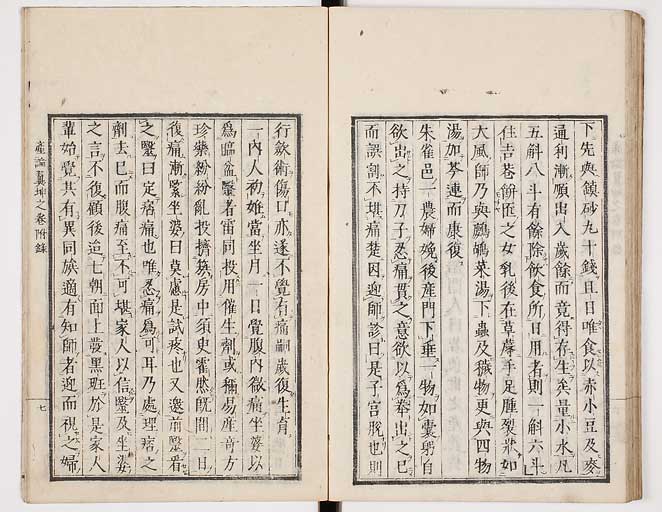 下先與鏹砂九十錢且日唯食以赤小豆及麥
通利漸順出入歲餘而竟得存生矣量小水凡
五斛八斗有餘除飲食所日用者則一斛六斗
住吉巷餠匠之女乳後在草蓐手足腫裂狀如
大風師乃與鷓鴣菜湯下蟲及穢物更與四物
湯加芩連而康復
朱雀邑一農婦娩後產門下垂一物如囊躬自
欲出之持刀子忍痛貫之意欲以爲牽出之已
而誤創不堪痛楚因迎師診曰是子宮脫也則
行斂術傷口亦遂不覺有痛嗣歲復生育
一內人初姙當坐月一日覺腹內微痛坐婆以
爲臨盆醫者雷同投用催生劑或稱易產奇方
珍藥紛紛亂投擠簇房中須臾霍然旣間二日
復痛漸緊坐婆曰莫慮是試疼也又邀前醫看
之醫曰定痞痛也唯忍痛爲可耳乃處理痞之
劑去已而腹痛至不可堪家人以信醫及坐婆
之言不復顧後迨七朝面上發黑斑於是家人
輩始覺其有異同族適有知師者迎而視之婦
產論翼坤之卷附錄
七